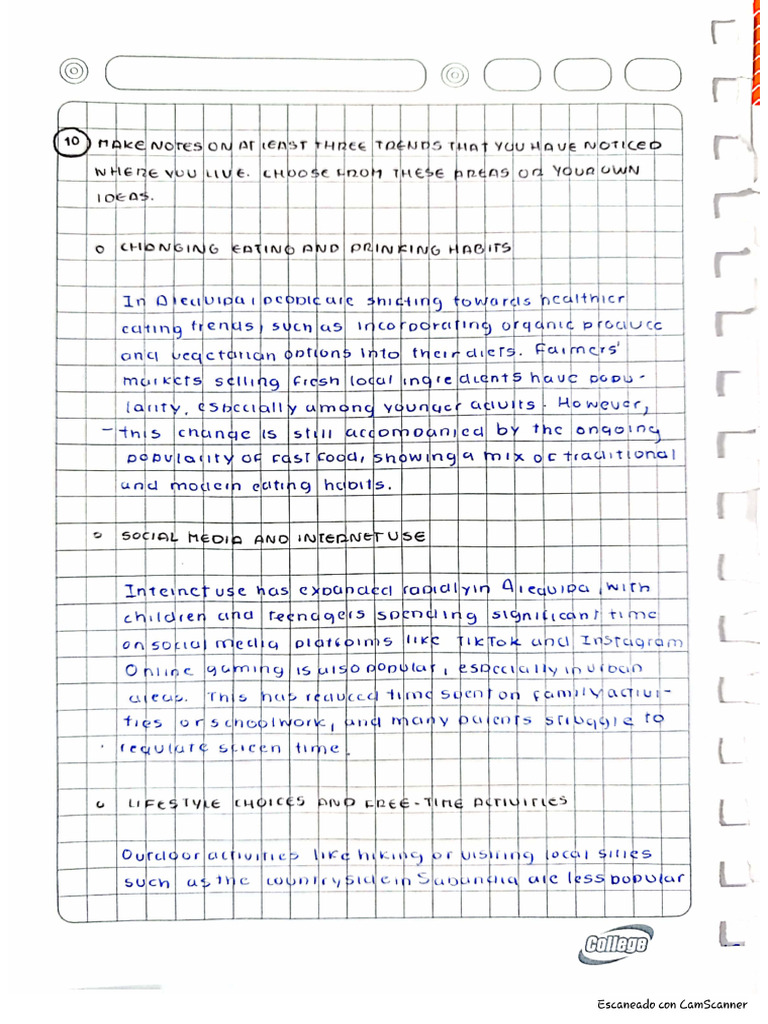 10 MAKE NOTES ON AT LEAST THREE TRENDS THAT YOU HAVE NOTICED
WHERE YOU LIVE. CHOOSE FROM THESE AREAS OR YOUR OWN
IDEAS.
o CHANGING EATING AND DRINKING HABITS
In Arequipa, people are shifting towards healthier
eating trends, such as incorporating organic produce
and vegetarian options into their diets. Farmers'
markets selling fresh local ingredients have popu-
larity, especially among younger adults. However,
-this change is still accompanied by the ongoing
popularity of fast food, showing a mix of traditional
and modern eating habits.
o SOCIAL MEDIA AND INTERNET USE
Internet use has expanded rapidly in Arequipa, with
children and teenagers spending significant time
on social media platforms like TikTok and Instagram
Online gaming is also popular, especially in urban
areas. This has reduced time spent on family activi-
ties or schoolwork, and many parents struggle to
regulate screen time.
o LIFESTYLE CHOICES AND FREE-TIME ACTIVITIES
Outdoor activities like hiking or visiting local sities
such as the countryside in Sabandia are less popular
College
Escaneado con CamScanner